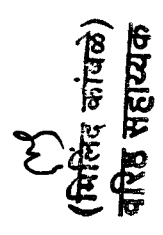 (मिलिंद कांबळे)
वरिष्ठ सहाय्यक